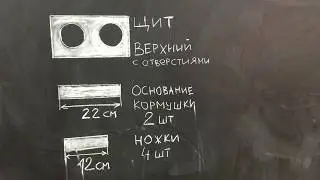 ЩИТ
ВЕРХНИЙ
С ОТВЕРСТИЯМИ
22 см
ОСНОВАНИЕ
КОРМУШКИ
2 шт
12 см
НОЖКИ
4 шт